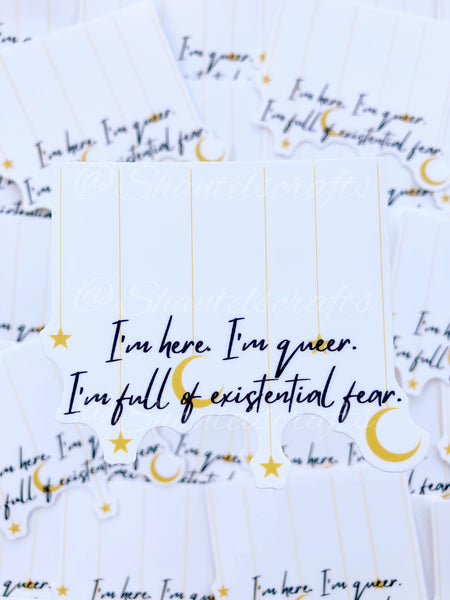 I'm here. I'm queer.
I'm here. I'm queer.
I'm full of existential fear.
I'm here. I'm queer.
existential fear.
queer.
@Shantelscrafts
@Shantelscrafts
I'm here. I'm queer.
I'm full of existential fear.
@Shantelscrafts
I'm here.
full of existential fear.
I'm here. I'm queer.
existential fear.
I'm queer.
I'm here. I'm queer.
I'm here. I'm queer.